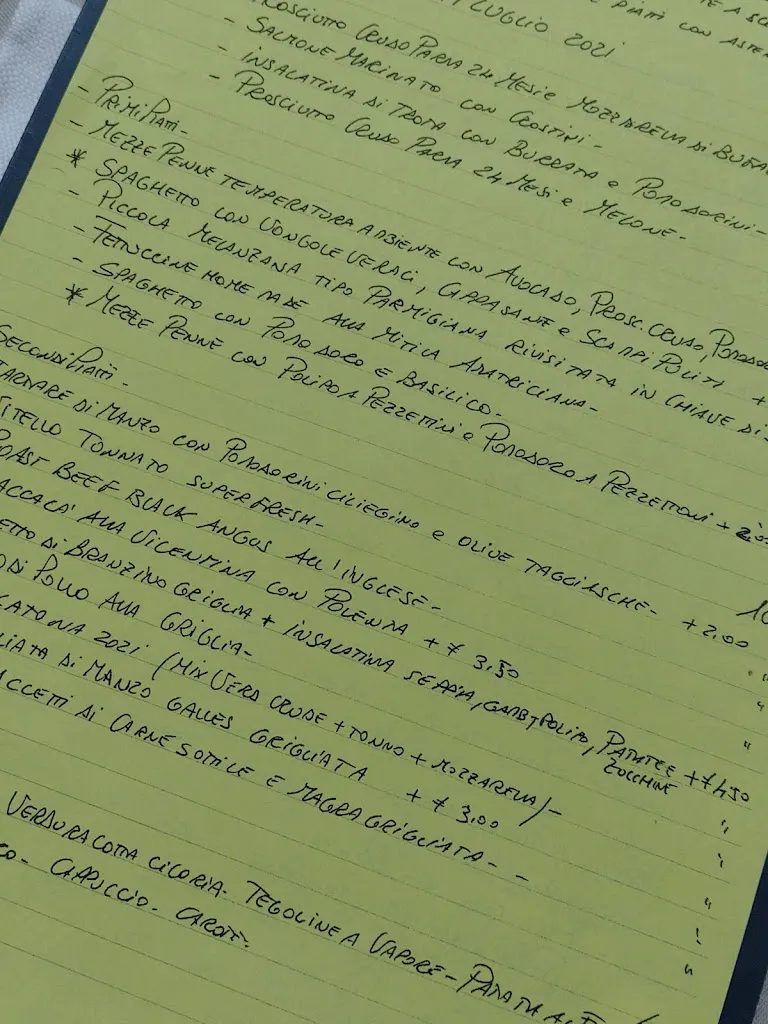 LUGLIO 2021
PIATTI CON
PROSCIUTTO CRUDO PARMA 24 MESI E MOZZARELLA DI BUFA
- SALMONE MARINATO CON CROSTINI -
- INSALATINA DI TROTA CON BURRATA E POMODORINI -
- PROSCIUTTO CRUDO PARMA 24 MESI E MELONE -
- PRIMI PIATTI -
- MEZZE PENNE TEMPERATURA ABIENTE CON AVOCADO, PROSC. CRUDO, POMODOR
* SPAGHETTO CON VONGOLE VERACI, CAPPASANTE E SCAMPI PULITI +
- PICCOLA MELANZANA TIPO PARMIGIANA RIVISITATA IN CHIAVE DI
- FETTUCCINE HOME MADE ALLA MITICA AMATRICIANA -
- SPAGHETTO CON POMODORO E BASILICO -
* MEZZE PENNE CON POLIPO A PEZZETTINI E POMODORO A PEZZETTONI +
SECONDI PIATTI -
TARTARE DI MANZO CON POMODORINI CILIEGINO E OLIVE TAGGIASCHE - + 2,00
VITELLO TONNATO SUPER FRESH -
ROAST BEEF BLACK ANGUS ALL'INGLESE -
BACCALA' ALLA VICENTINA CON POLENTA + € 3,50
ETTO DI BRANZINO GRIGLIA + INSALATINA SEPPIA, GAMB, POLIPO, PATATE E ZUCCHINE + € 4,50
DI POLLO ALLA GRIGLIA -
2021 (MIX VERD CRUDE + TONNO + MOZZARELLA) -
LIATA DI MANZO GALLES GRIGLIATA + € 3,00
ACCETTI DI CARNE SOTTILE E MAGRA GRIGLIATA - -
VERDURA COTTA CICORIA - TEGOLINE A VAPORE - PATATA AL
CO - CAPUCCIO - CAROTE -